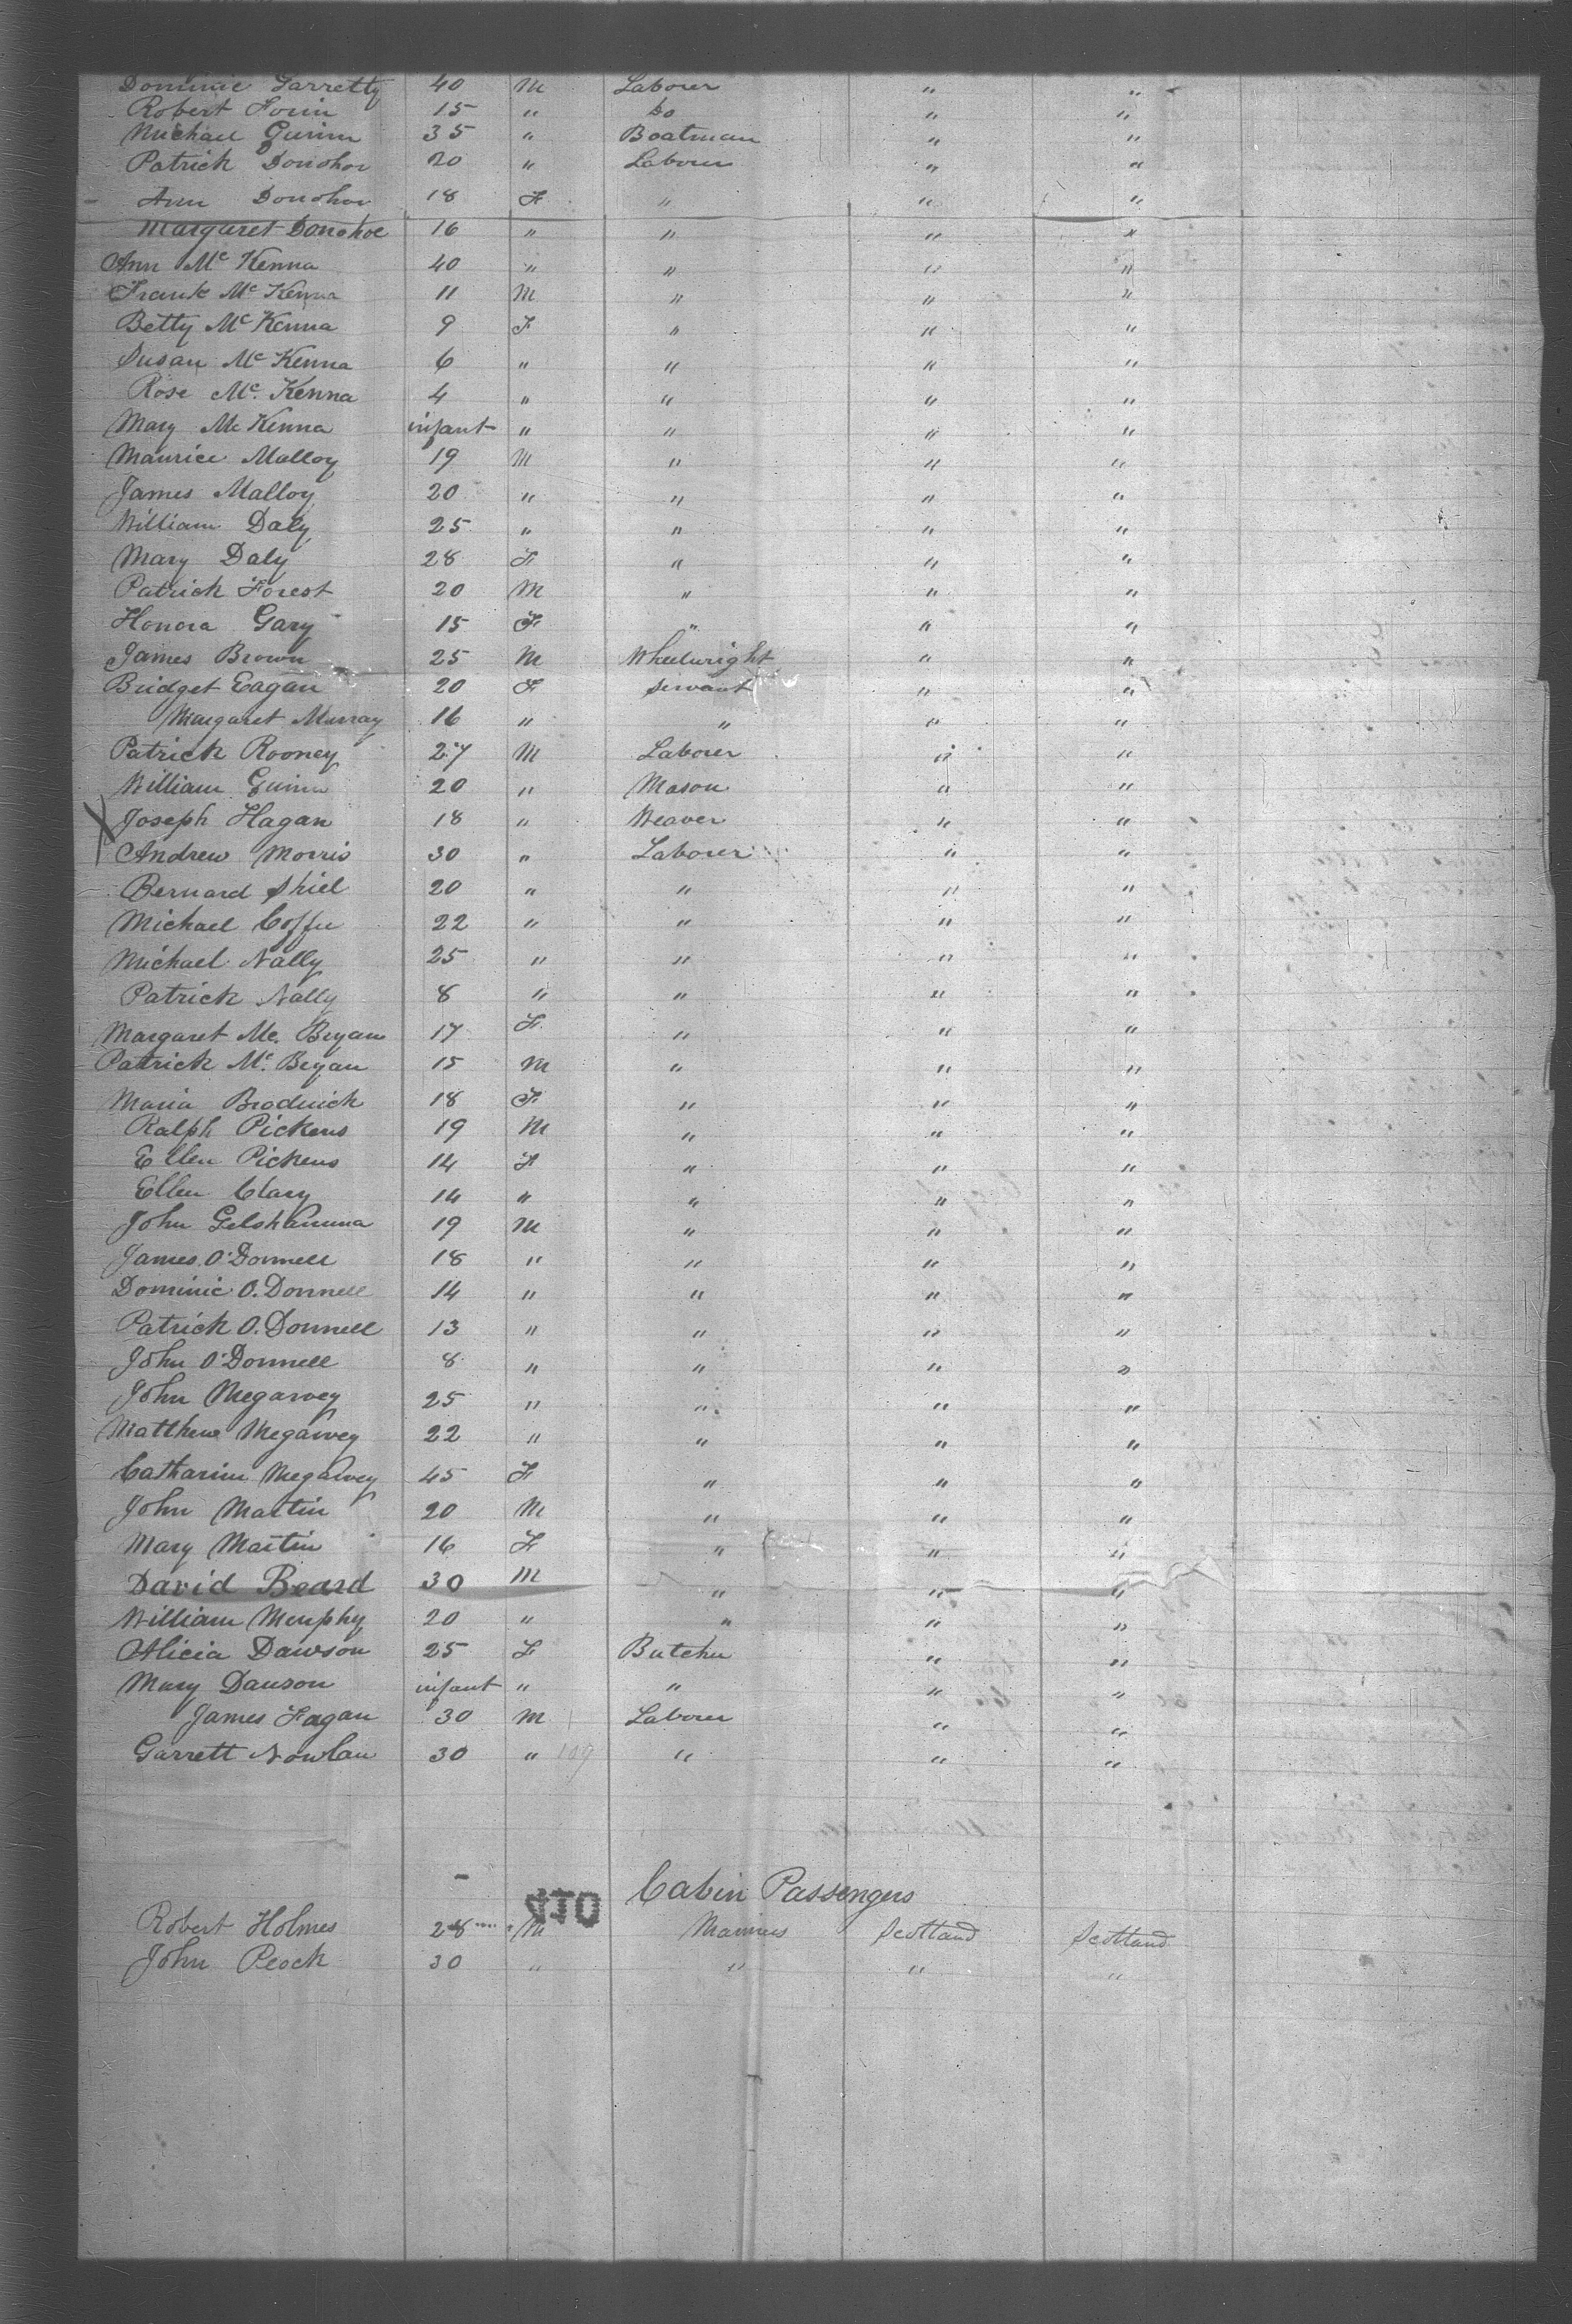 Dominic Garretty 40 M Laborer " "
Robert 15 " Do " "
Michael Guinn 35 " Boatman " "
Patrick Donohoe 20 " Laborer " "
Ann Donohoe 18 F " " "
Margaret Donohoe 16 " " " "
Ann Mc Kenna 40 " " " "
Frank Mc Kenna 11 M " " "
Betty Mc Kenna 9 F " " "
Susan Mc Kenna 6 " " " "
Rose Mc. Kenna 4 " " " "
Mary Mc Kenna infant " " " "
Maurice Malloy 19 M " " "
James Malloy 20 " " " "
William Daly 25 " " " "
Mary Daly 28 F " " "
Patrick Forest 20 M " " "
Honora Gary 15 F " " "
James Brown 25 M Wheelwright " "
Bridget Eagan 20 F servant " "
Margaret Murray 16 " " " "
Patrick Rooney 27 M Laborer " "
William Guinn 20 " Mason " "
X Joseph Hagan 18 " Weaver " "
Andrew Morris 30 " Laborer " "
Bernard Shiel 20 " " " "
Michael Coffee 22 " " " "
Michael Nally 25 " " " "
Patrick Nally 8 " " " "
Margaret Mc. Bryan 17 F " " "
Patrick Mc. Bryan 15 M " " "
Maria Brodnick 18 F " " "
Ralph Pickens 19 M " " "
Ellen Pickens 14 F " " "
Ellen Clary 14 " " " "
John Gelshannna 19 M " " "
James O'Donnell 18 " " " "
Dominic O. Donnell 14 " " " "
Patrick O. Donnell 13 " " " "
John O'Donnell 8 " " " "
John Megarvey 25 " " " "
Matthew Megarvey 22 " " " "
Catharine Megarvey 45 F " " "
John Martin 20 M " " "
Mary Martin 16 F " " "
David Beard 30 M " " "
William Murphy 20 " " " "
Alicia Dawson 25 F Butcher " "
Mary Dawson infant " " " "
James Fagan 30 M Laborer " "
Garrett Nowlan 30 " 109 " " "
Cabin Passengers
Robert Holmes 28 M Mariners Scotland Scotland
John Peock 30 " " " "